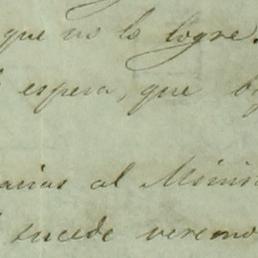 que no lo logre.
espera, que
al Minis
sucede veremo